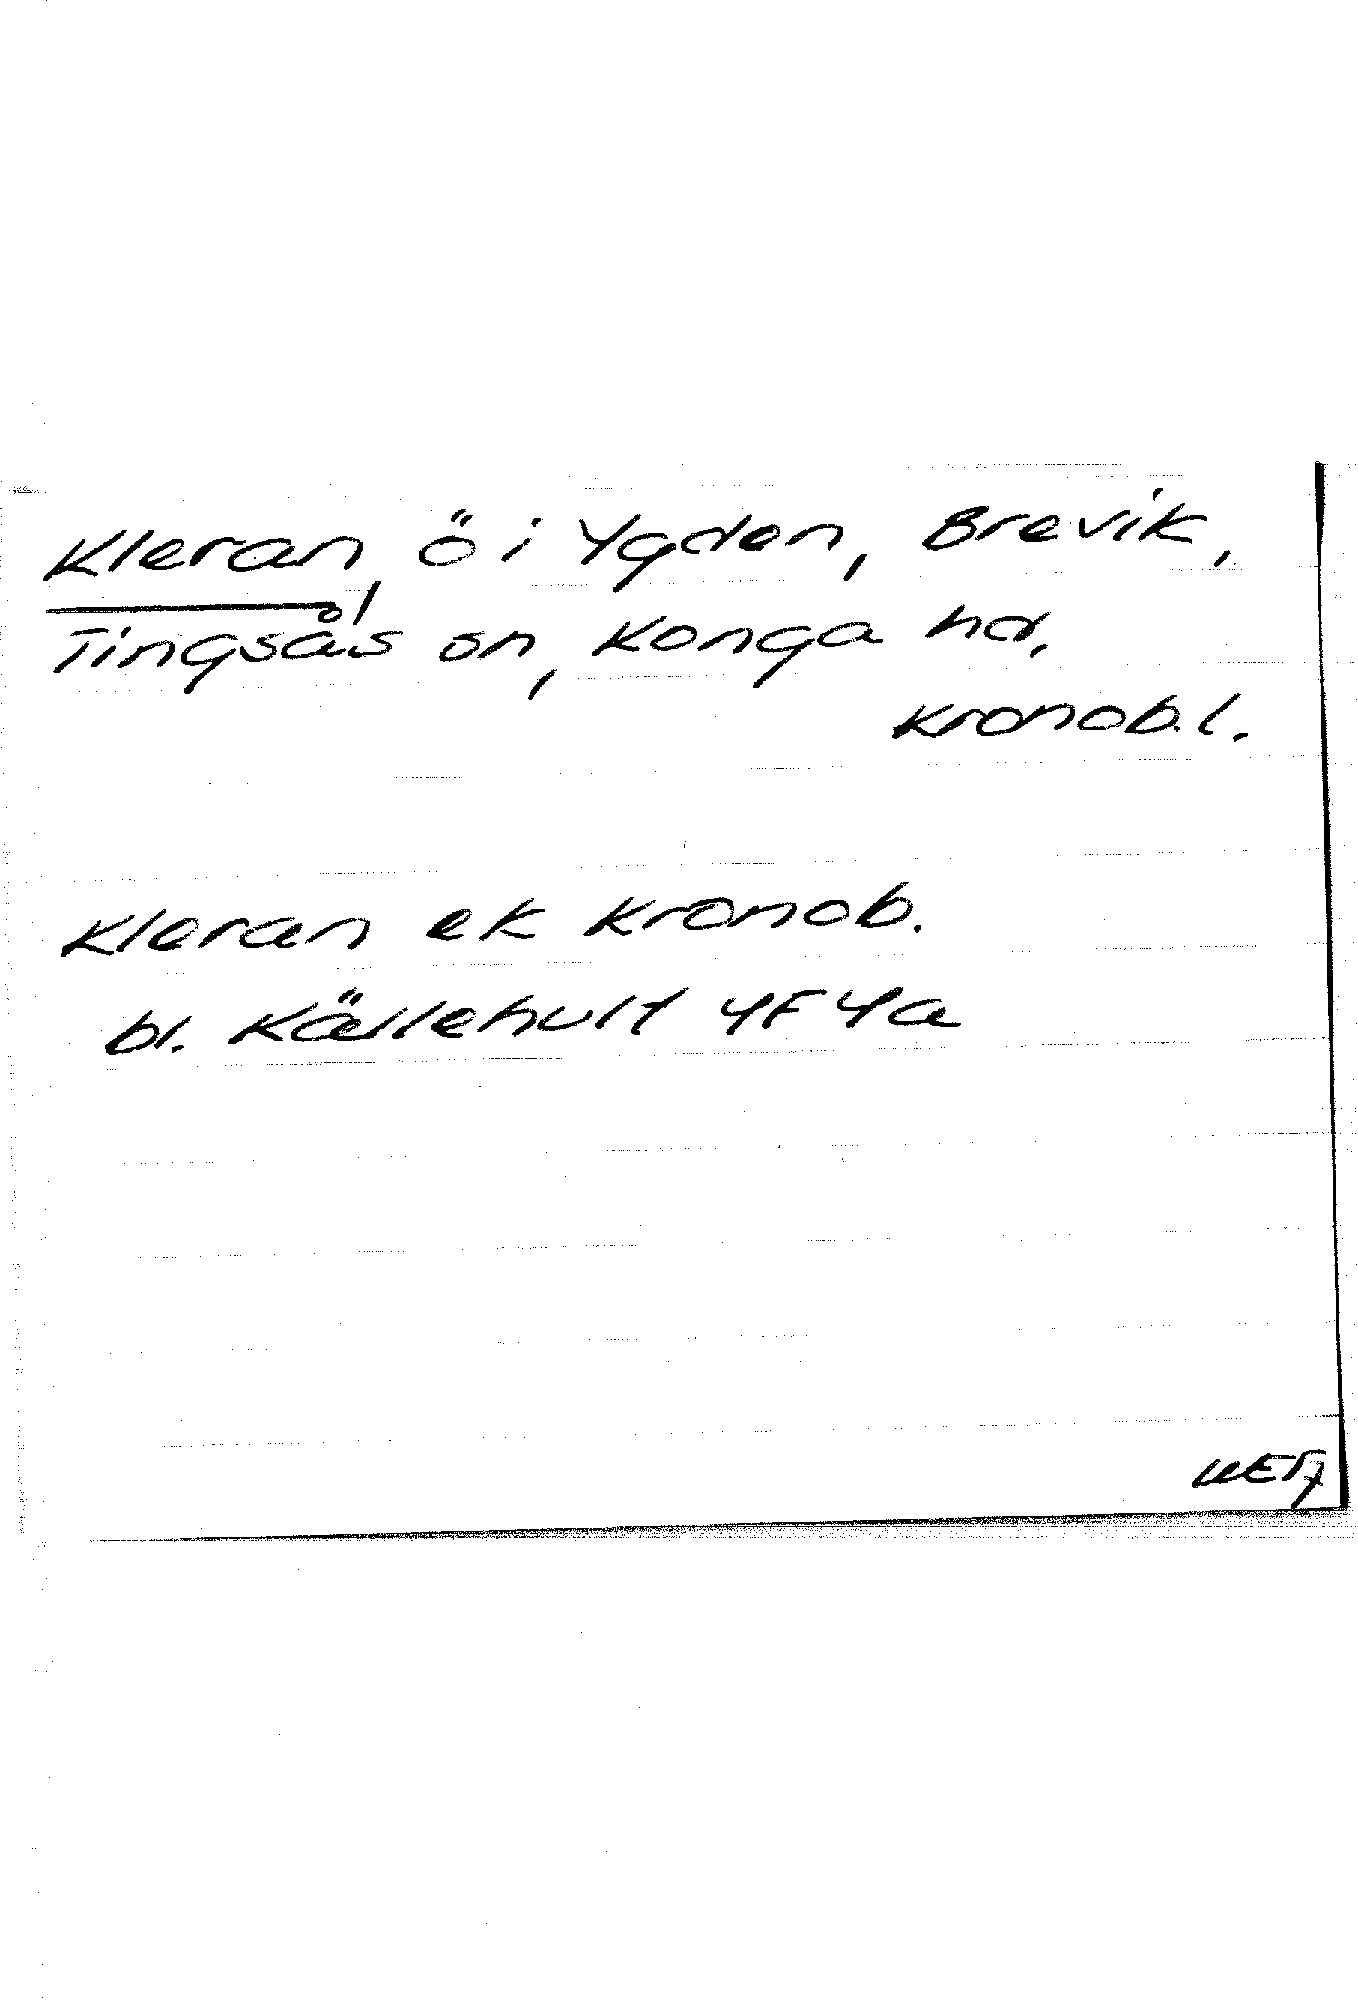 Kleran, ö i Ygden, Brevik,
Tingsås sn, Konga hd,
Kronob. l.
Kleran ek Kronob.
bl. Källehult 4F 4a